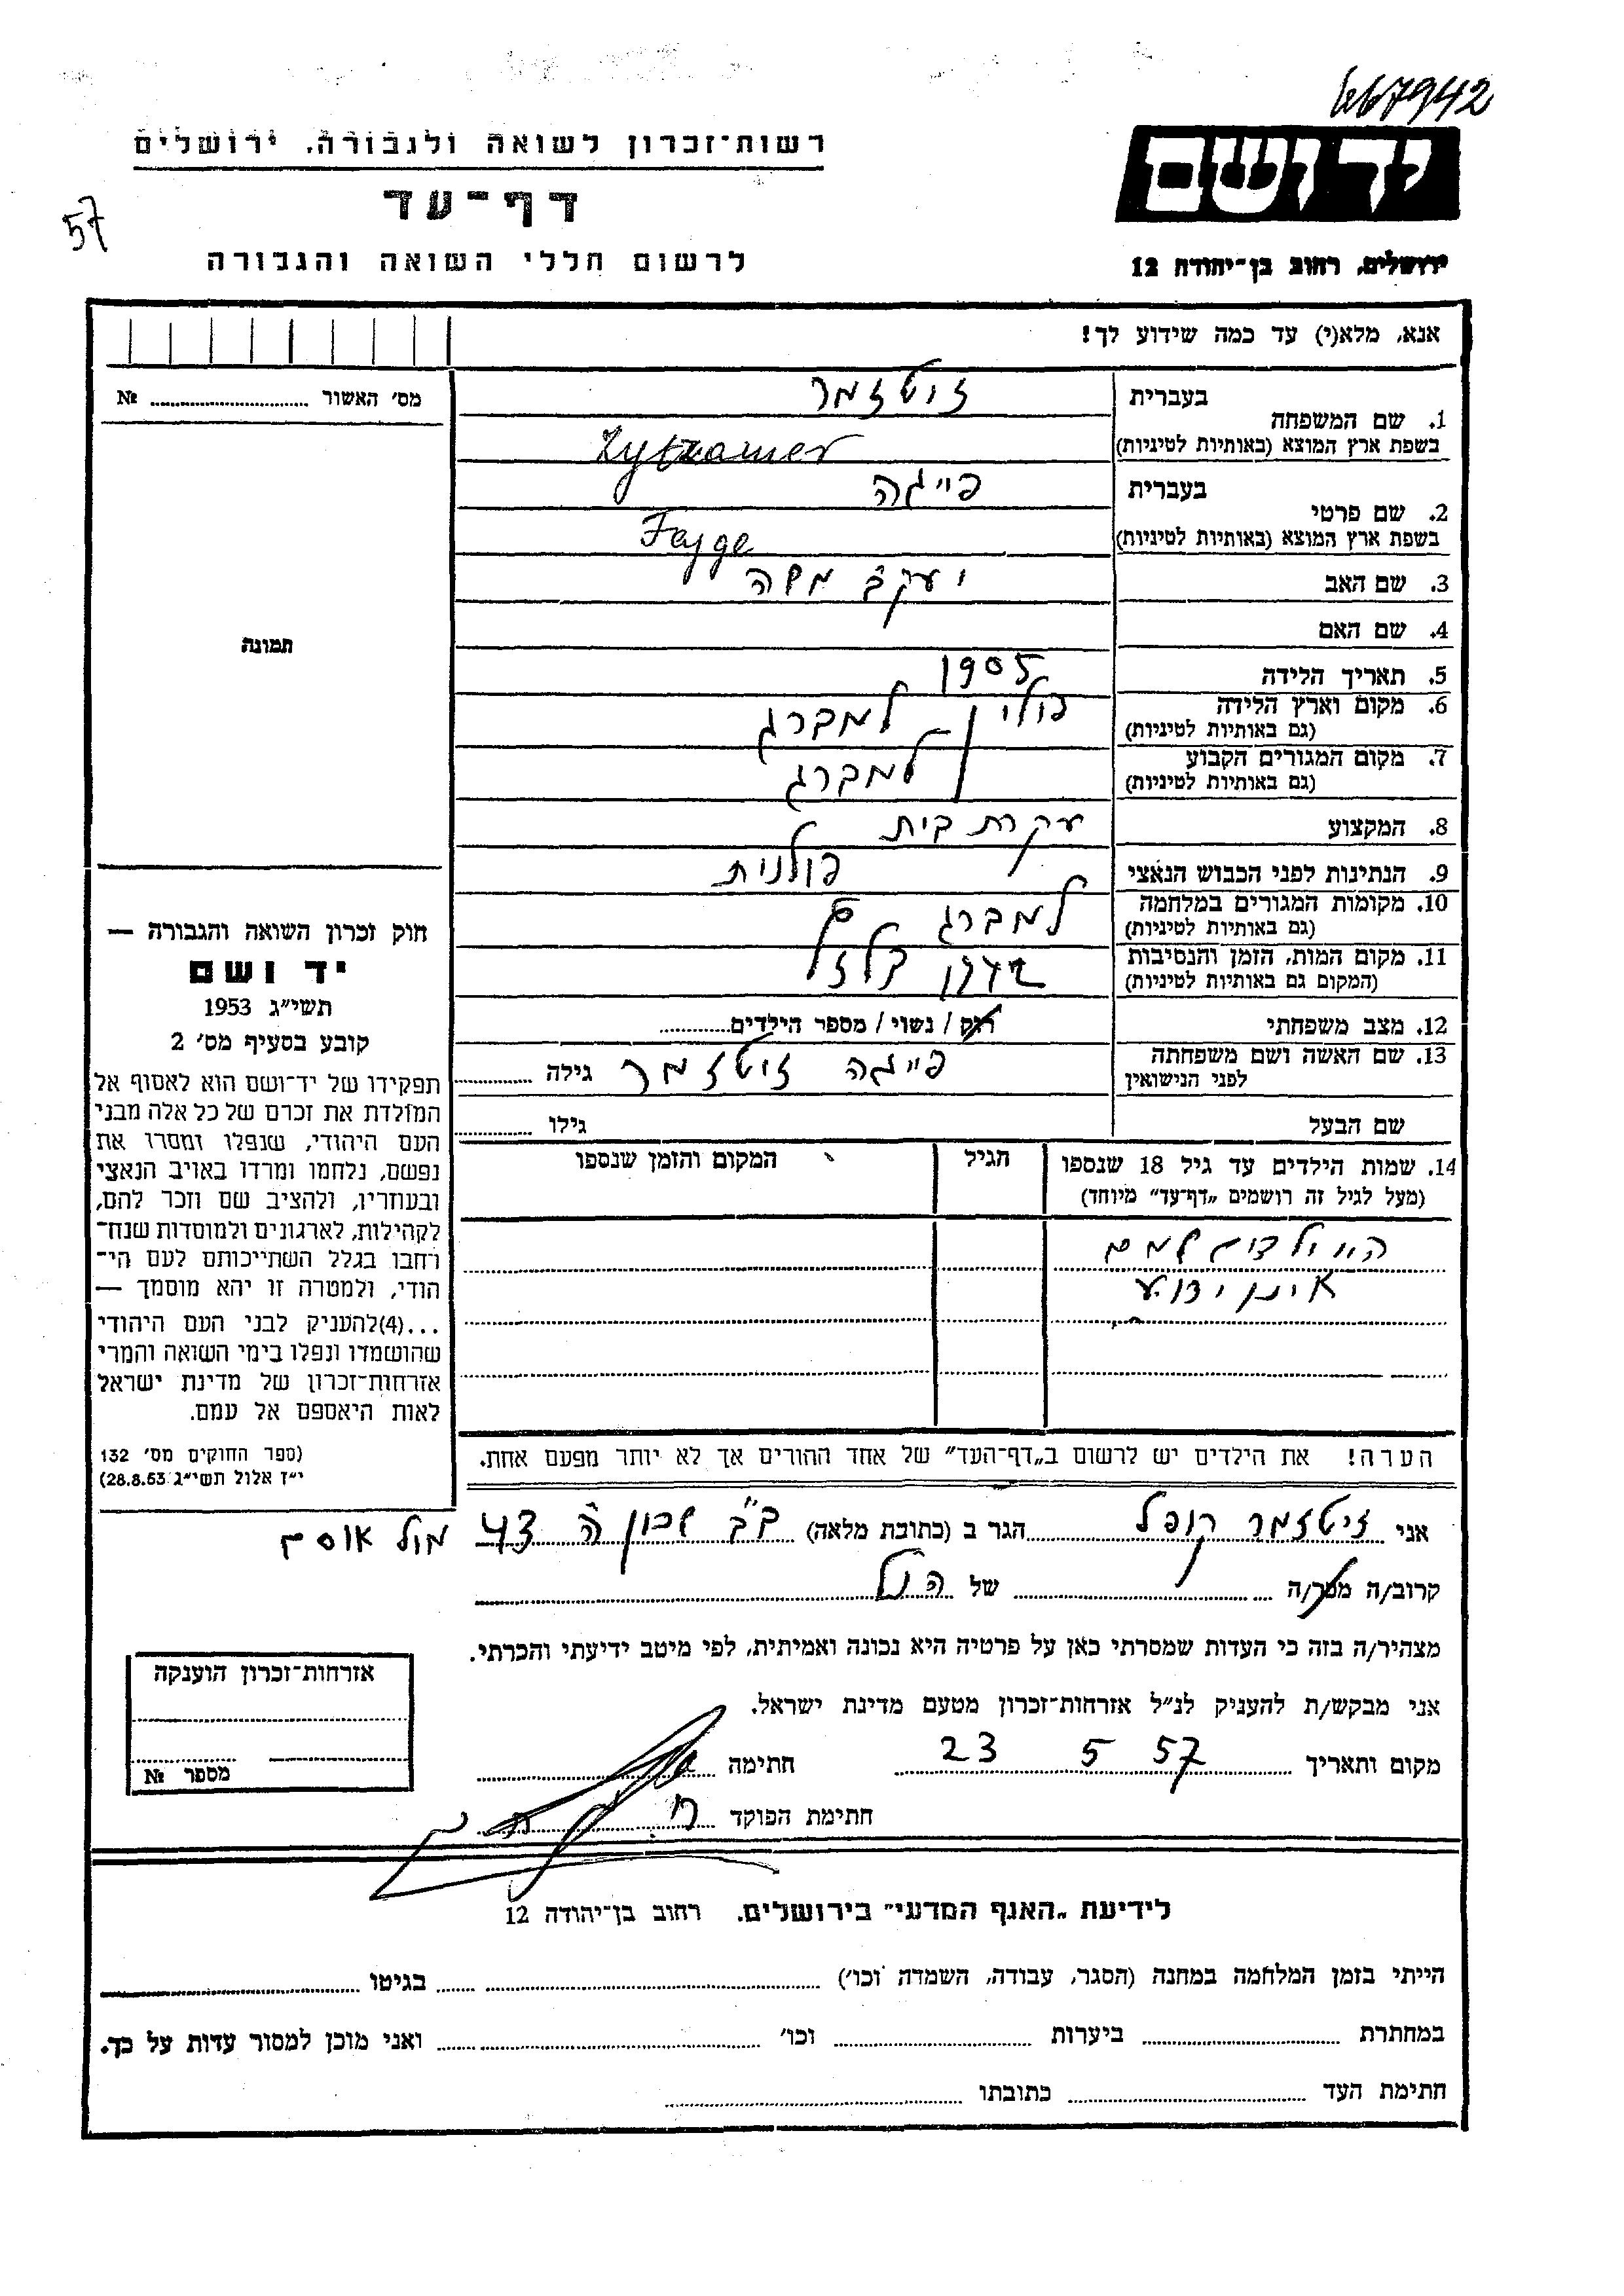 667942
יד ושם
רשות־זכרון לשואה ולגבורה, ירושלים
דף־עד
57
לרשום חללי השואה והגבורה
ירושלים, רחוב בן־יהודה 12
אנא, מלא(י) עד כמה שידוע לך!
מס׳ האשור ........ №
בעברית זיטזמר
1. שם המשפחה
בשפת ארץ המוצא (באותיות לטיניות) Zytzamer
בעברית פייגה
2. שם פרטי
בשפת ארץ המוצא (באותיות לטיניות) Fajge
3. שם האב יעקב משה
4. שם האם
תמונה
5. תאריך הלידה 1905
6. מקום וארץ הלידה פולין למברג
(גם באותיות לטיניות)
7. מקום המגורים הקבוע למברג
(גם באותיות לטיניות)
8. המקצוע עקרת בית
9. הנתינות לפני הכבוש הנאצי פולנית
10. מקומות המגורים במלחמה למברג
(גם באותיות לטיניות)
11. מקום המות, הזמן והנסיבות בלזץ
(המקום גם באותיות לטיניות)
12. מצב משפחתי רוק / נשוי / מספר הילדים........
13. שם האשה ושם משפחתה פייגה זיטזמר גילה ........
לפני הנישואין
שם הבעל גילו ........
14. שמות הילדים עד גיל 18 שנספו הגיל המקום והזמן שנספו
(מעל לגיל זה רושמים „דף־עד” מיוחד)
היו ילדים
אינן ידוע
חוק זכרון השואה והגבורה —
יד ושם
תשי״ג 1953
קובע בסעיף מס׳ 2
תפקידו של יד־ושם הוא לאסוף אל
המולדת את זכרם של כל אלה מבני
העם היהודי, שנפלו ומסרו את
נפשם, נלחמו ומרדו באויב הנאצי
ובעוזריו, ולהציב שם וזכר להם,
לקהילות, לארגונים ולמוסדות שנח־
רחבו בגלל השתייכותם לעם הי־
הודי, ולמטרה זו יהא מוסמך —
...(4)להעניק לבני העם היהודי
שהושמדו ונפלו בימי השואה והמרי
אזרחות־זכרון של מדינת ישראל
לאות היאספם אל עמם.
(ספר החוקים מס׳ 132
י״ז אלול תשי״ג 28.8.53)
הערה! את הילדים יש לרשום ב„דף־העד” של אחד ההורים אך לא יותר מפעם אחת.
אני זיטזמר קופל הגר ב (כתובת מלאה) ב״ב שכון ה 43 מול אוסם
קרוב/ה מכר/ה ........ של הנ״ל
מצהיר/ה בזה כי העדות שמסרתי כאן על פרטיה היא נכונה ואמיתית, לפי מיטב ידיעתי והכרתי.
אני מבקש/ת להעניק לנ״ל אזרחות־זכרון מטעם מדינת ישראל.
מקום ותאריך 23 5 57 חתימה
חתימת הפוקד
אזרחות־זכרון הוענקה
מספר №
לידיעת „האגף המדעי” בירושלים. רחוב בן־יהודה 12
הייתי בזמן המלחמה במחנה (הסגר, עבודה, השמדה וכו׳) ........ בגיטו ........
במחתרת ........ ביערות ........ וכו׳ ........ ואני מוכן למסור עדות על כך.
חתימת העד ........ כתובתו ........